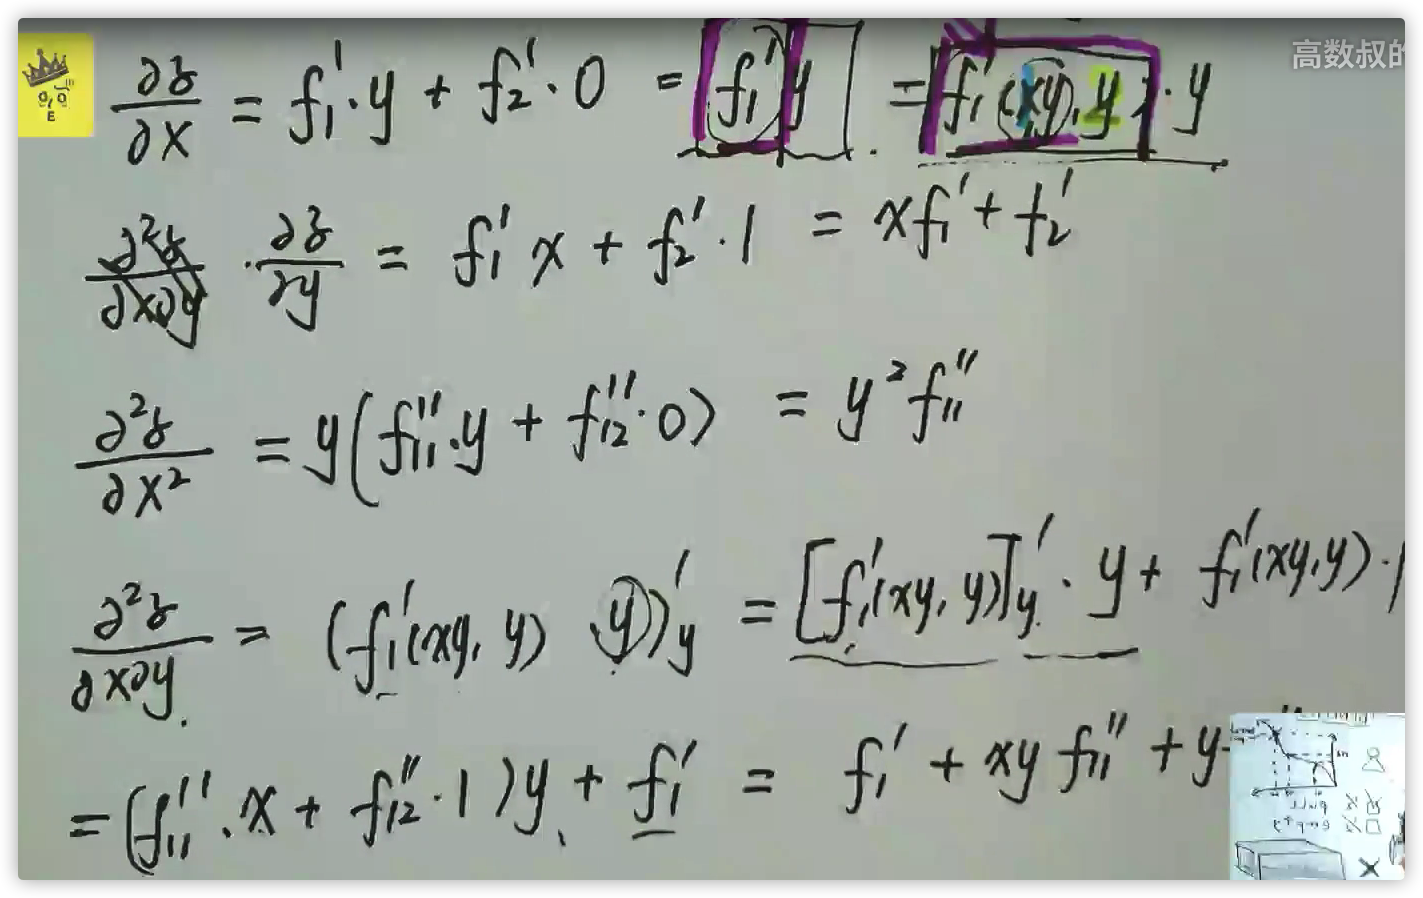 高数叔的
∂z/∂x = f₁'·y + f₂'·0 = f₁'y = f₁'(xy, y)·y
∂²z/∂x∂y · ∂z/∂y = f₁'x + f₂'·1 = xf₁' + f₂'
∂²z/∂x² = y(f₁₁''·y + f₁₂''·0) = y²f₁₁''
∂²z/∂x∂y = (f₁'(xy, y) y)'y = [f₁'(xy, y)]'y · y + f₁'(xy, y)·1
= (f₁₁''·x + f₁₂''·1)y + f₁' = f₁' + xy f₁₁'' + y